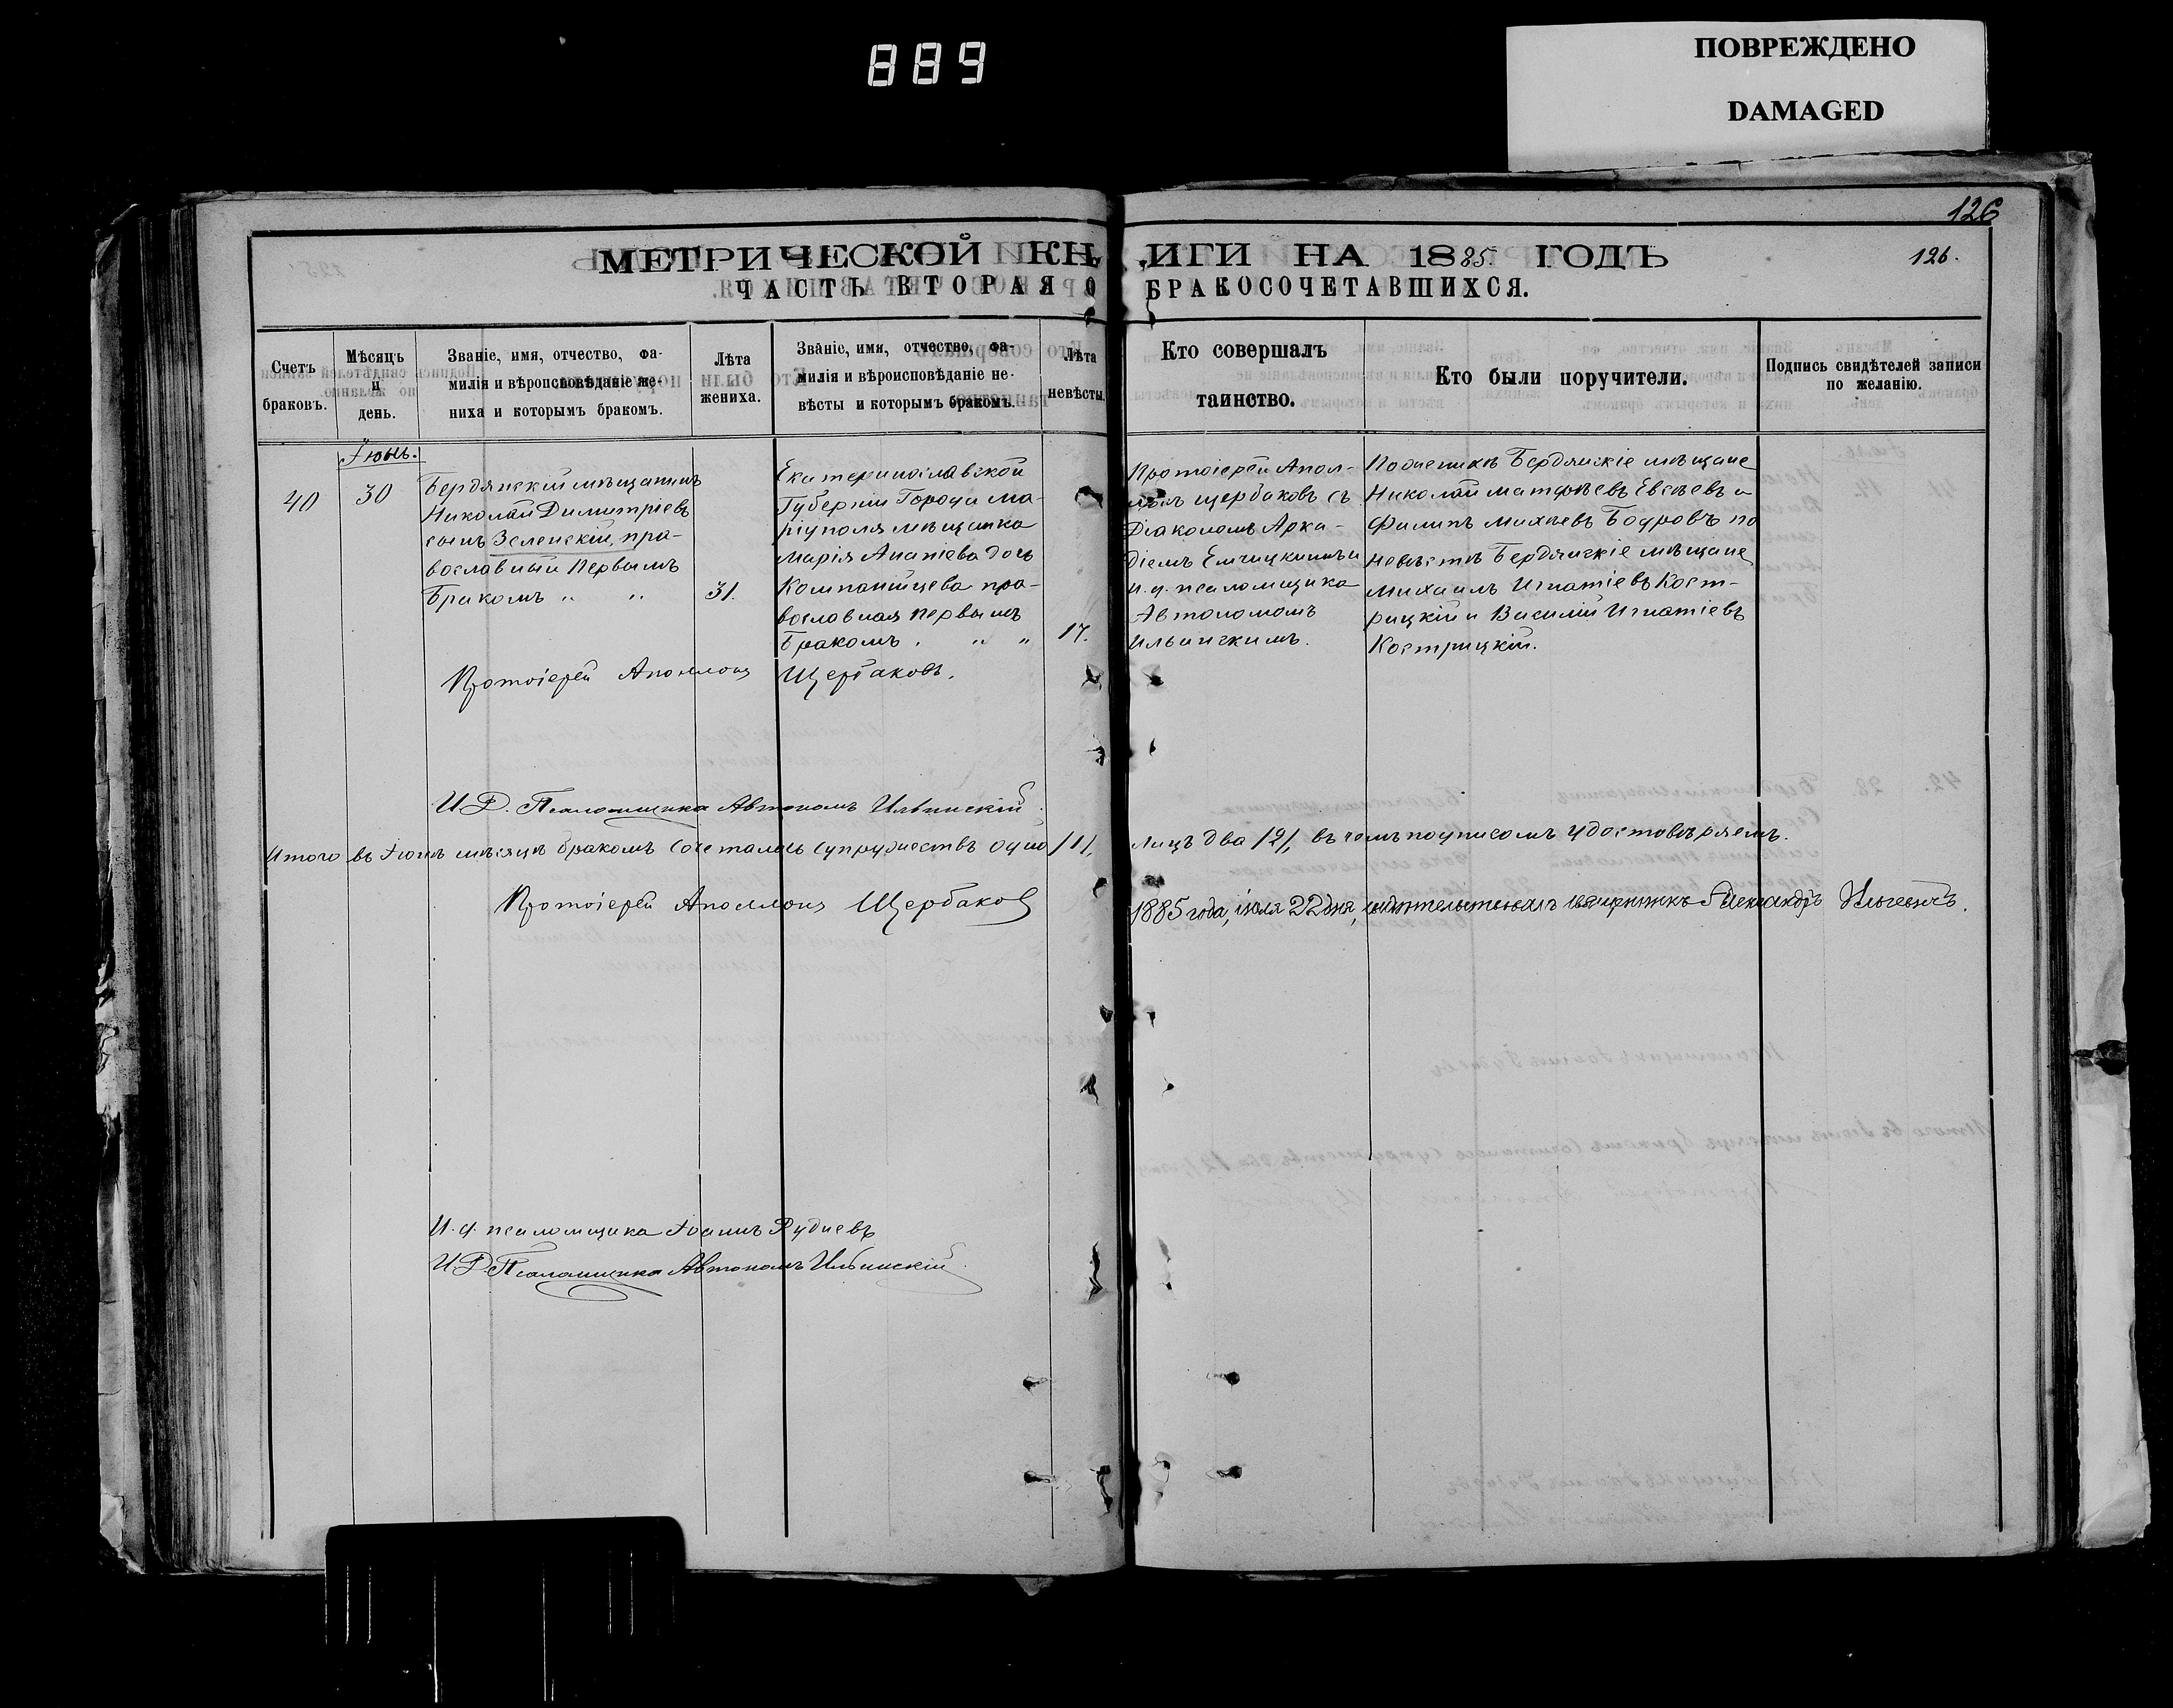 889
ПОВРЕЖДЕНО
DAMAGED
126
МЕТРИЧЕСКОЙ КНИГИ НА 1885 ГОДЪ
126.
ЧАСТЬ ВТОРАЯ О БРАКОСОЧЕТАВШИХСЯ.
Счетъ
браковъ.
Мѣсяцъ
и
день.
Званіе, имя, отчество, фа-
милія и вѣроисповѣданіе же-
ниха и которымъ бракомъ.
Лѣта
жениха.
Званіе, имя, отчество, фа-
милія и вѣроисповѣданіе не-
вѣсты и которымъ бракомъ.
Лѣта
невѣсты.
Кто совершалъ
таинство.
Кто были поручители.
Подпись свидѣтелей записи
по желанію.
Іюнь.
40
30
Бердянскій мѣщанинъ
Николай Димитріевъ
сынъ Зеленскій, пра-
вославный первымъ
бракомъ " "
31.
Екатеринославской
Губерніи Города Ма-
ріуполя мѣщанка
Марія Ананіева дочь
Компанійцева пра-
вославная первымъ
бракомъ . " "
17.
Протоіерей Апол-
лонъ Щербаковъ съ
Діакономъ Арка-
діемъ и
и. д. псаломщика
Автономомъ
Ильинскимъ.
По женихѣ Бердянскіе мѣщане
Николай Матфѣевъ Евсѣевъ и
Филипъ Михѣевъ Бодровъ по
невѣстѣ Бердянскіе мѣщане
Михаилъ Игнатіевъ Кост-
рицкій и Василій Игнатіевъ
Кострицкій.
Протоіерей Аполлонъ Щербаковъ.
И.Д. Псаломщика Автономъ Ильинскій.
Итого въ Іюнѣ мѣсяцѣ бракомъ сочеталось супружествъ одно /1/, лицъ два /2/, въ чемъ подписомъ удостовѣряемъ.
Протоіерей Аполлонъ Щербаковъ
1885 года, іюля 22 дня, свидѣтельствовалъ священникъ Александръ
И. д. псаломщика Іоаннъ Рудневъ
И.Д. Псаломщика Автономъ Ильинскій